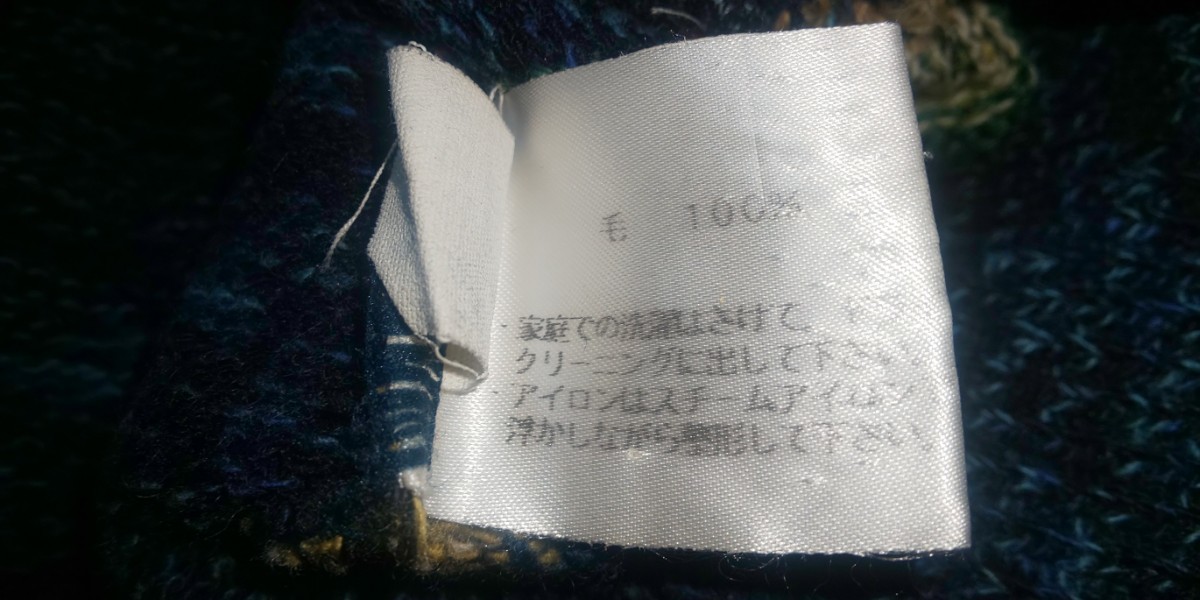 毛 100%
・家庭での洗濯はさけて、
クリーニングに出して下さい。
・アイロンはスチームアイロンで
浮かしながら整形して下さい。